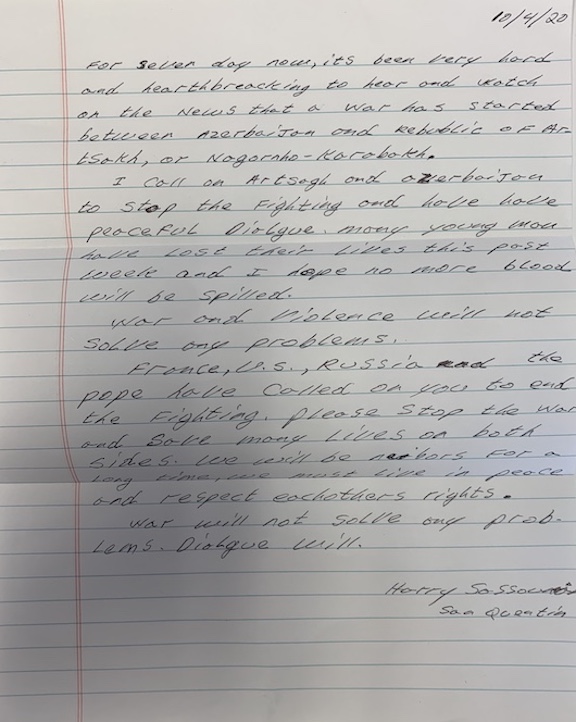 10/4/20
For seven day now, its been very hard
and hearthbreacking to hear and watch
on the News that a war has started
between Azerbaijan and Rebublic of Ar-
tsakh, or Nagorno-Karabakh.
I call on Artsagh and azerbaijan
to stop the Fighting and have have
peaceful Dialgue. many young man
have lost their lives this past
week and I hope no more blood
will be spilled.
War and violence will not
solve any problems.
France, U.S., Russia and the
pope have called on you to end
the Fighting. please stop the war
and save many lives on both
sides. we will be neibors for a
long time, we must live in peace
and respect eachothers rights.
War will not solve any prob-
lems. Dialgue will.
Harry Sassounian
San Quentin